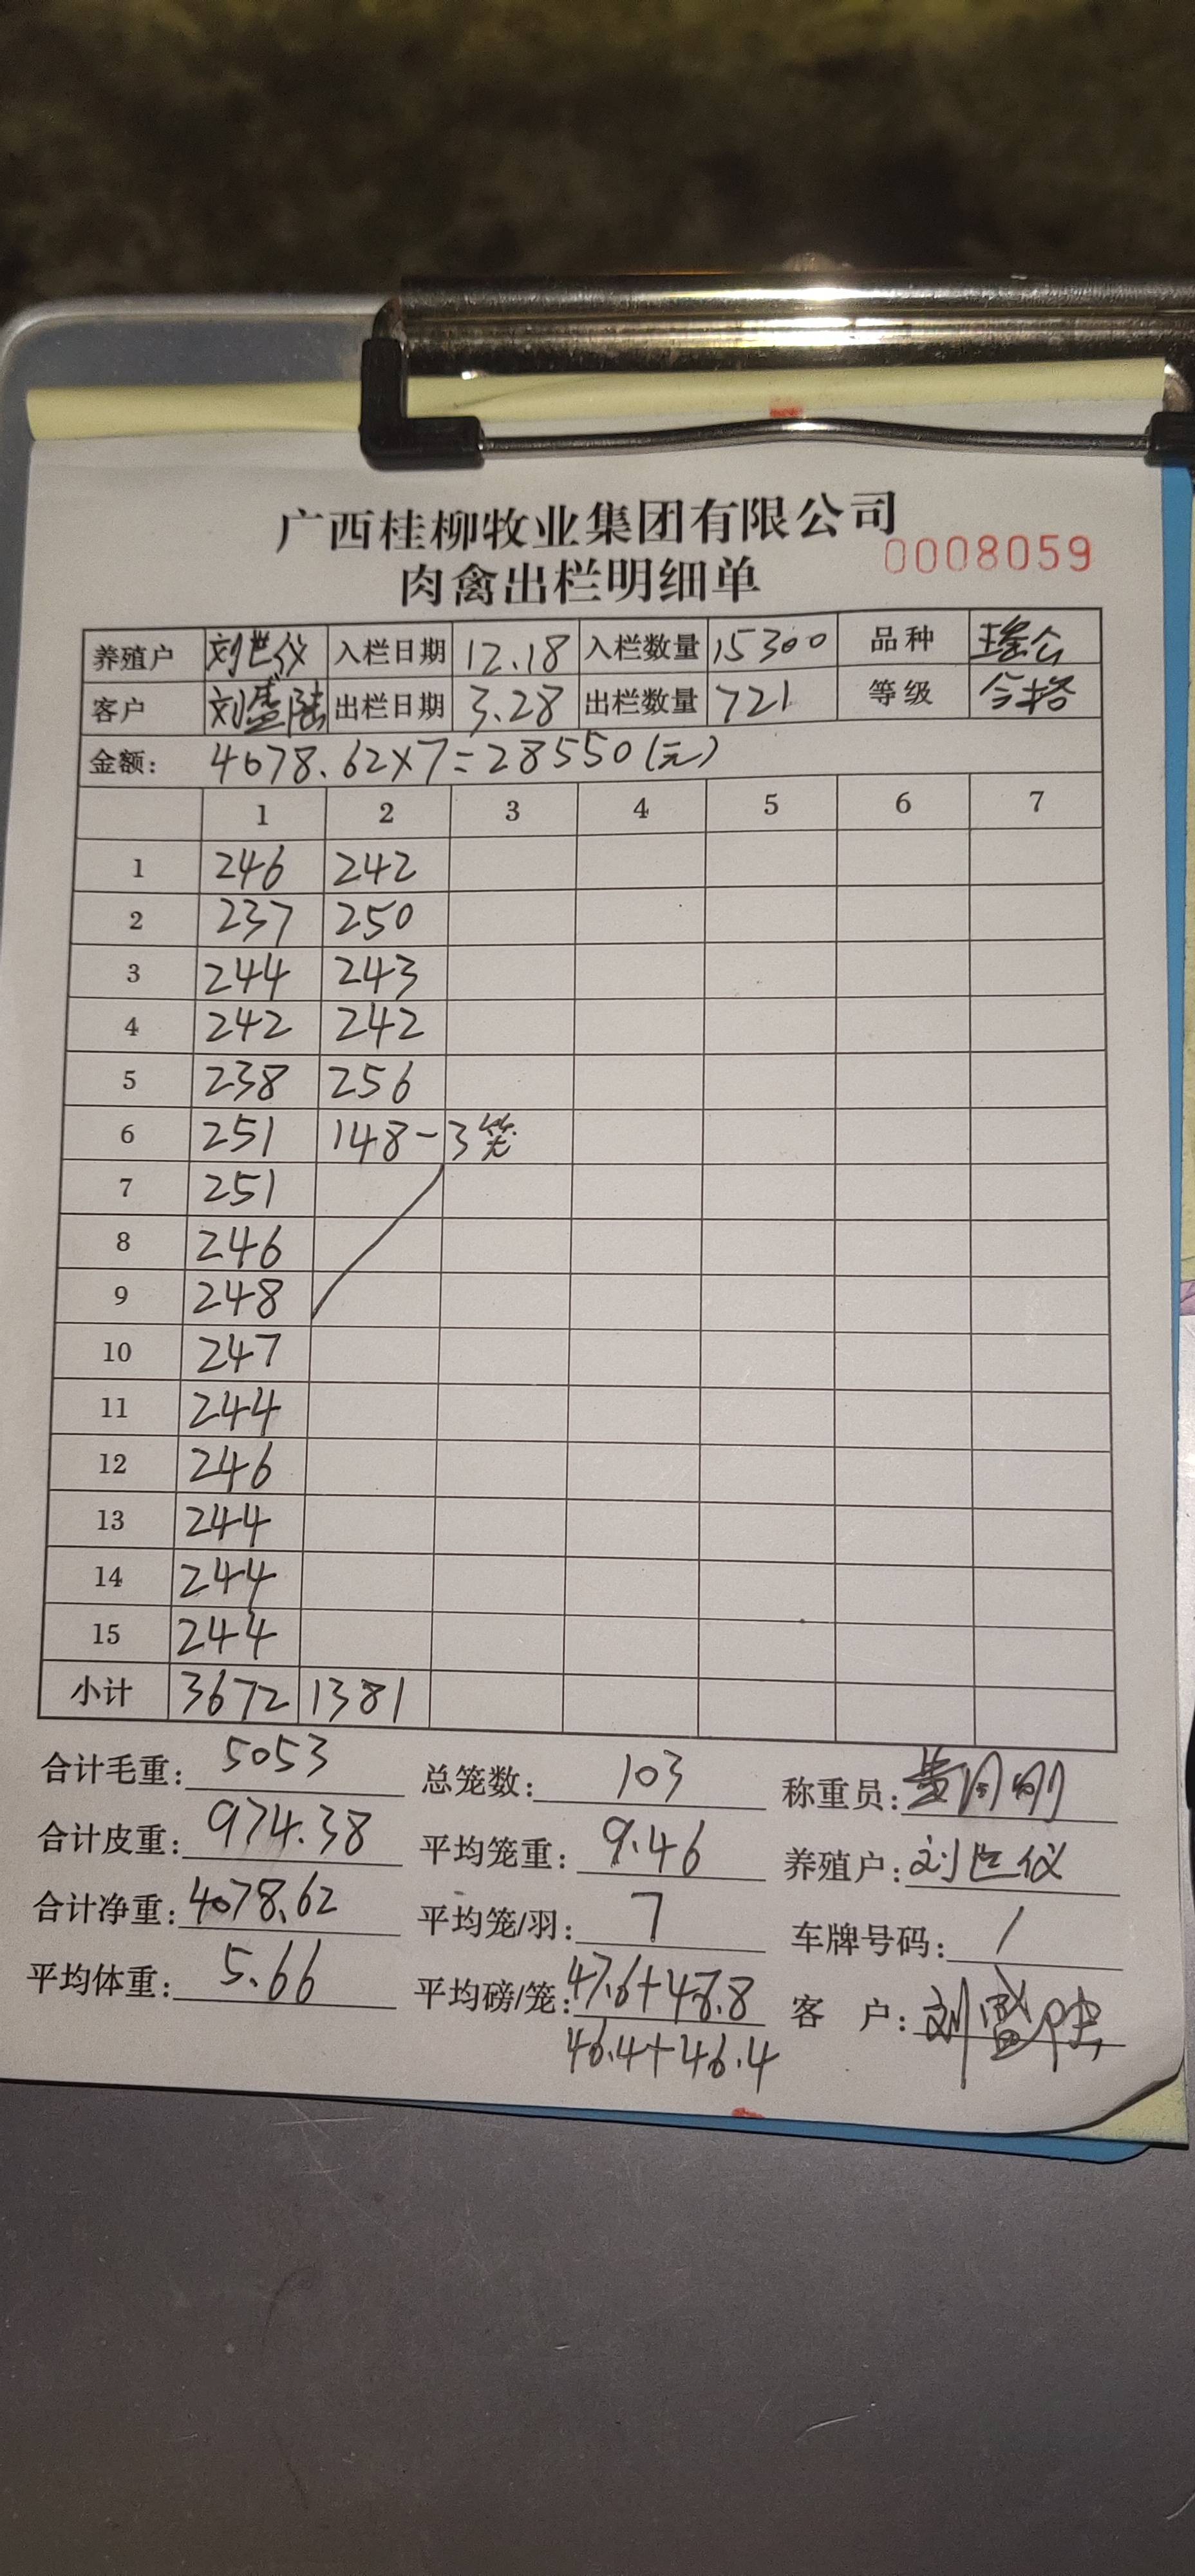 广西桂柳牧业集团有限公司
0008059
肉禽出栏明细单
养殖户 刘世仪 入栏日期 12.18 入栏数量 15300 品种 瑶公
客户 刘盛陆 出栏日期 3.28 出栏数量 721 等级 合格
金额: 4078.62×7=28550(元)
1 2 3 4 5 6 7
1 246 242
2 237 250
3 244 243
4 242 242
5 238 256
6 251 148-3笼
7 251
8 246
9 248
10 247
11 244
12 246
13 244
14 244
15 244
小计 3672 1381
合计毛重: 5053 总笼数: 103 称重员:
合计皮重: 974.38 平均笼重: 9.46 养殖户: 刘世仪
合计净重: 4078.62 平均笼/羽: 7 车牌号码: /
平均体重: 5.66 平均磅/笼: 47.6+48.8 客 户: 刘盛陆
46.4+46.4